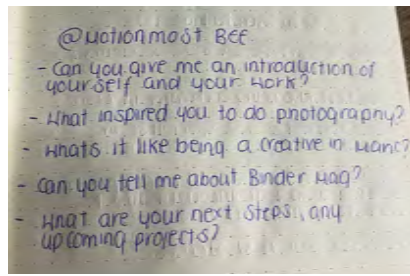 @motionmost BEE
- Can you give me an introduction of
yourself and your work?
- What inspired you to do photography?
- Whats it like being a creative in Manc?
- Can you tell me about Binder Mag?
- What are your next steps, any
upcoming projects?